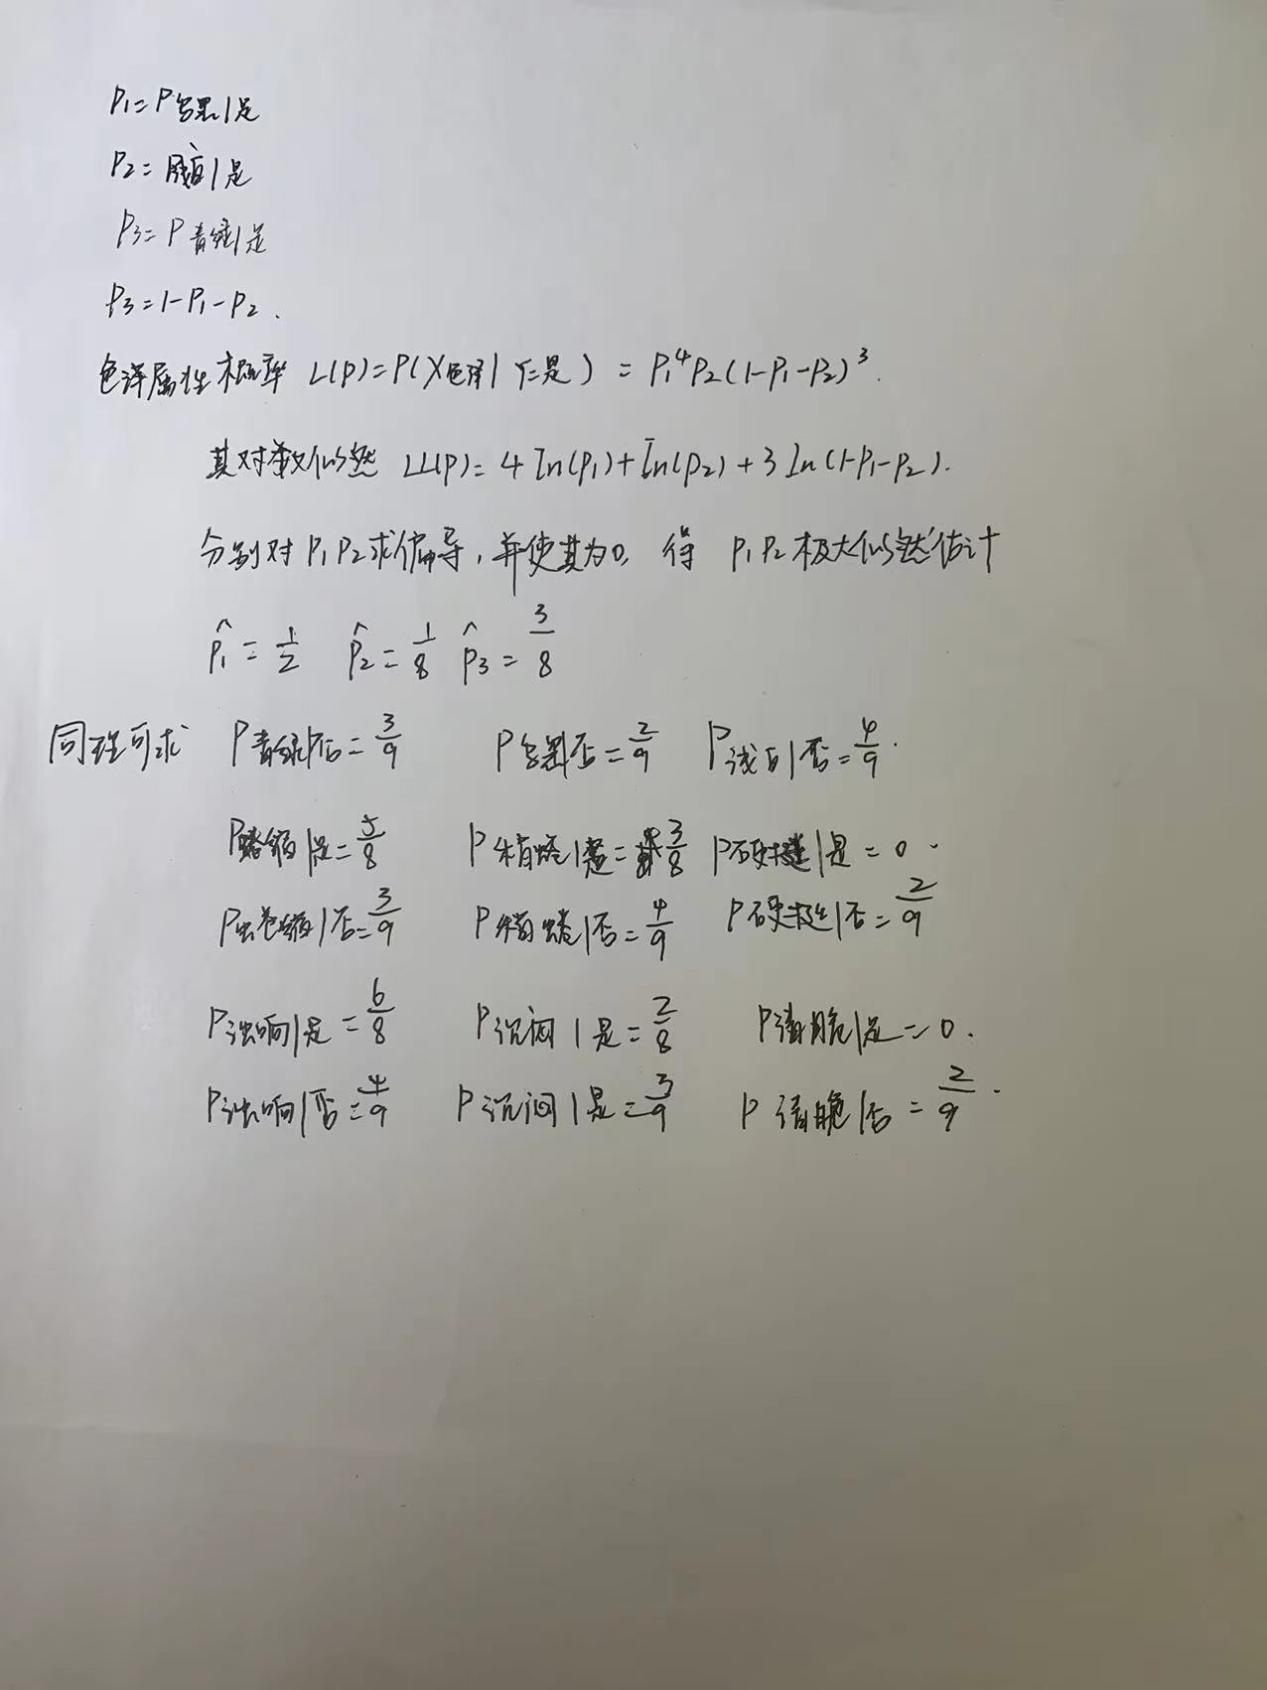 P₁=P乌黑|是
P₂= 浅白|是
P₃=P青绿|是
P₃=1-P₁-P₂.
色泽属性概率 L(P)=P(X色泽|Y=是) = P₁⁴P₂(1-P₁-P₂)³.
其对数似然 LL(P)=4 In(P₁)+In(P₂)+3 In(1-P₁-P₂).
分别对P₁P₂求偏导,并使其为0, 得 P₁P₂极大似然估计
p̂₁=1/2 p̂₂=1/8 p̂₃=3/8
同理可求 P青绿|否=3/9 P乌黑|否=2/9 P浅白|否=4/9.
P蜷缩|是=5/8 P稍蜷|是=3/8 P硬挺|是=0.
P蜷缩|否=3/9 P稍蜷|否=4/9 P硬挺|否=2/9
P浊响|是=6/8 P沉闷|是=2/8 P清脆|是=0.
P浊响|否=4/9 P沉闷|是=3/9 P清脆|否=2/9.